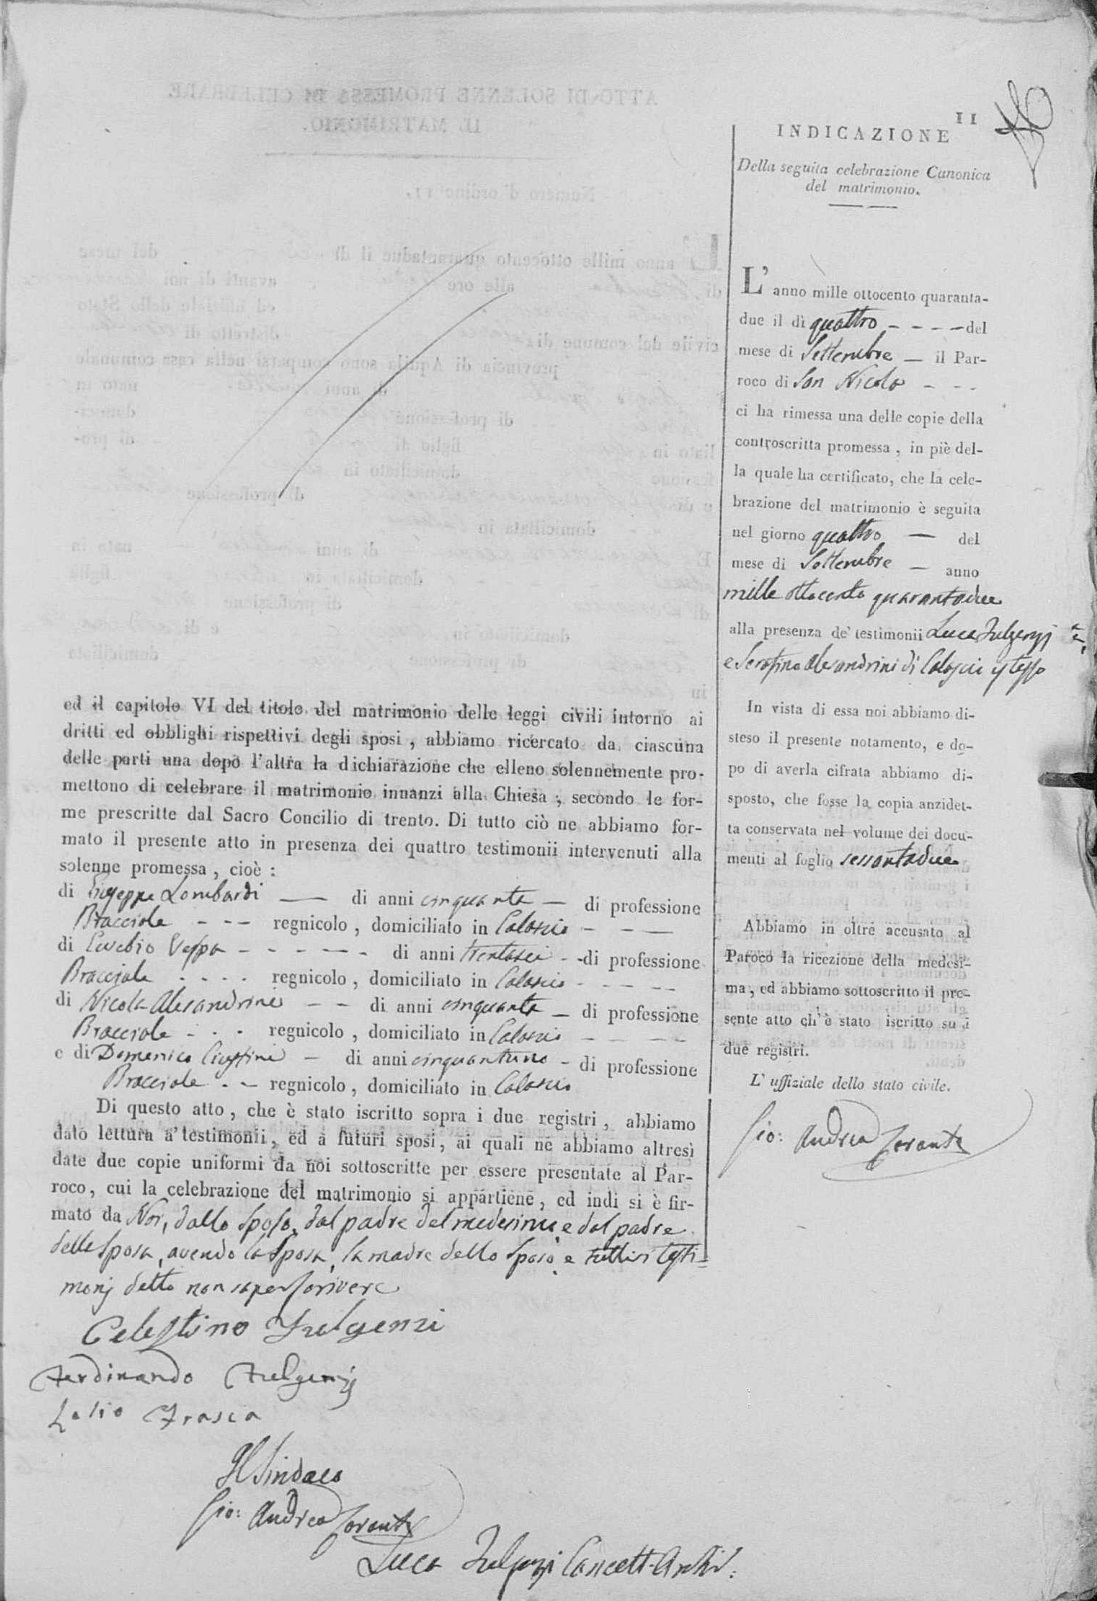 ed il capitolo VI del titolo del matrimonio delle leggi civili intorno ai
dritti ed obblighi rispettivi degli sposi, abbiamo ricercato da ciascuna
delle parti una dopo l'altra la dichiarazione che elleno solennemente pro-
mettono di celebrare il matrimonio innanzi alla Chiesa, secondo le for-
me prescritte dal Sacro Concilio di trento. Di tutto ciò ne abbiamo for-
mato il presente atto in presenza dei quattro testimonii intervenuti alla
solenne promessa, cioè:
di Giuseppe Lombardi — di anni cinquanta — di professione
Bracciale - - - regnicolo, domiciliato in Calascio - - —
di Eusebio Vespa - - - - - - di anni trentasei - - di professione
Bracciale - - - - regnicolo, domiciliato in Calascio - - - - -
di Nicola Alesandrini - - di anni cinquanta — di professione
Bracciale - - - regnicolo, domiciliato in Calascio - - - -
e di Domenico — di anni cinquantuno - di professione
Bracciale - - regnicolo, domiciliato in Calascio
Di questo atto, che è stato iscritto sopra i due registri, abbiamo
dato lettura a' testimonii, ed a futuri sposi, ai quali ne abbiamo altresì
date due copie uniformi da noi sottoscritte per essere presentate al Par-
roco, cui la celebrazione del matrimonio si appartiene, ed indi si è fir-
mato da Noi, dallo Sposo, dal padre del medesimo e dal padre
della Sposa, avendo la Sposa, la madre dello Sposo e tutti i testi=
monj detto non saper scrivere
Celestino Fulgenzi
Ferdinando Fulgenzj
Lelio Frasca
Il Sindaco
Gio: Andrea
Luca Fulgenzj Cancell. Archiv.
11
INDICAZIONE
Della seguita celebrazione Canonica
del matrimonio.
L'anno mille ottocento quaranta-
due il dì quattro - - - - del
mese di Settembre — il Par-
roco di San Nicola - - -
ci ha rimessa una delle copie della
controscritta promessa, in piè del-
la quale ha certificato, che la cele-
brazione del matrimonio è seguita
nel giorno quattro — del
mese di Settembre — anno
mille ottocento quarantadue
alla presenza de' testimonii Luca Fulgenzj
e Serafino Alesandrini di Calascio istesso
In vista di essa noi abbiamo di-
steso il presente notamento, e do-
po di averla cifrata abbiamo di-
sposto, che fosse la copia anzidet-
ta conservata nel volume dei docu-
menti al foglio sessantadue
Abbiamo in oltre accusato al
Paroco la ricezione della medesi-
ma, ed abbiamo sottoscritto il pre-
sente atto ch'è stato iscritto su i
due registri.
L' uffiziale dello stato civile.
Gio: Andrea